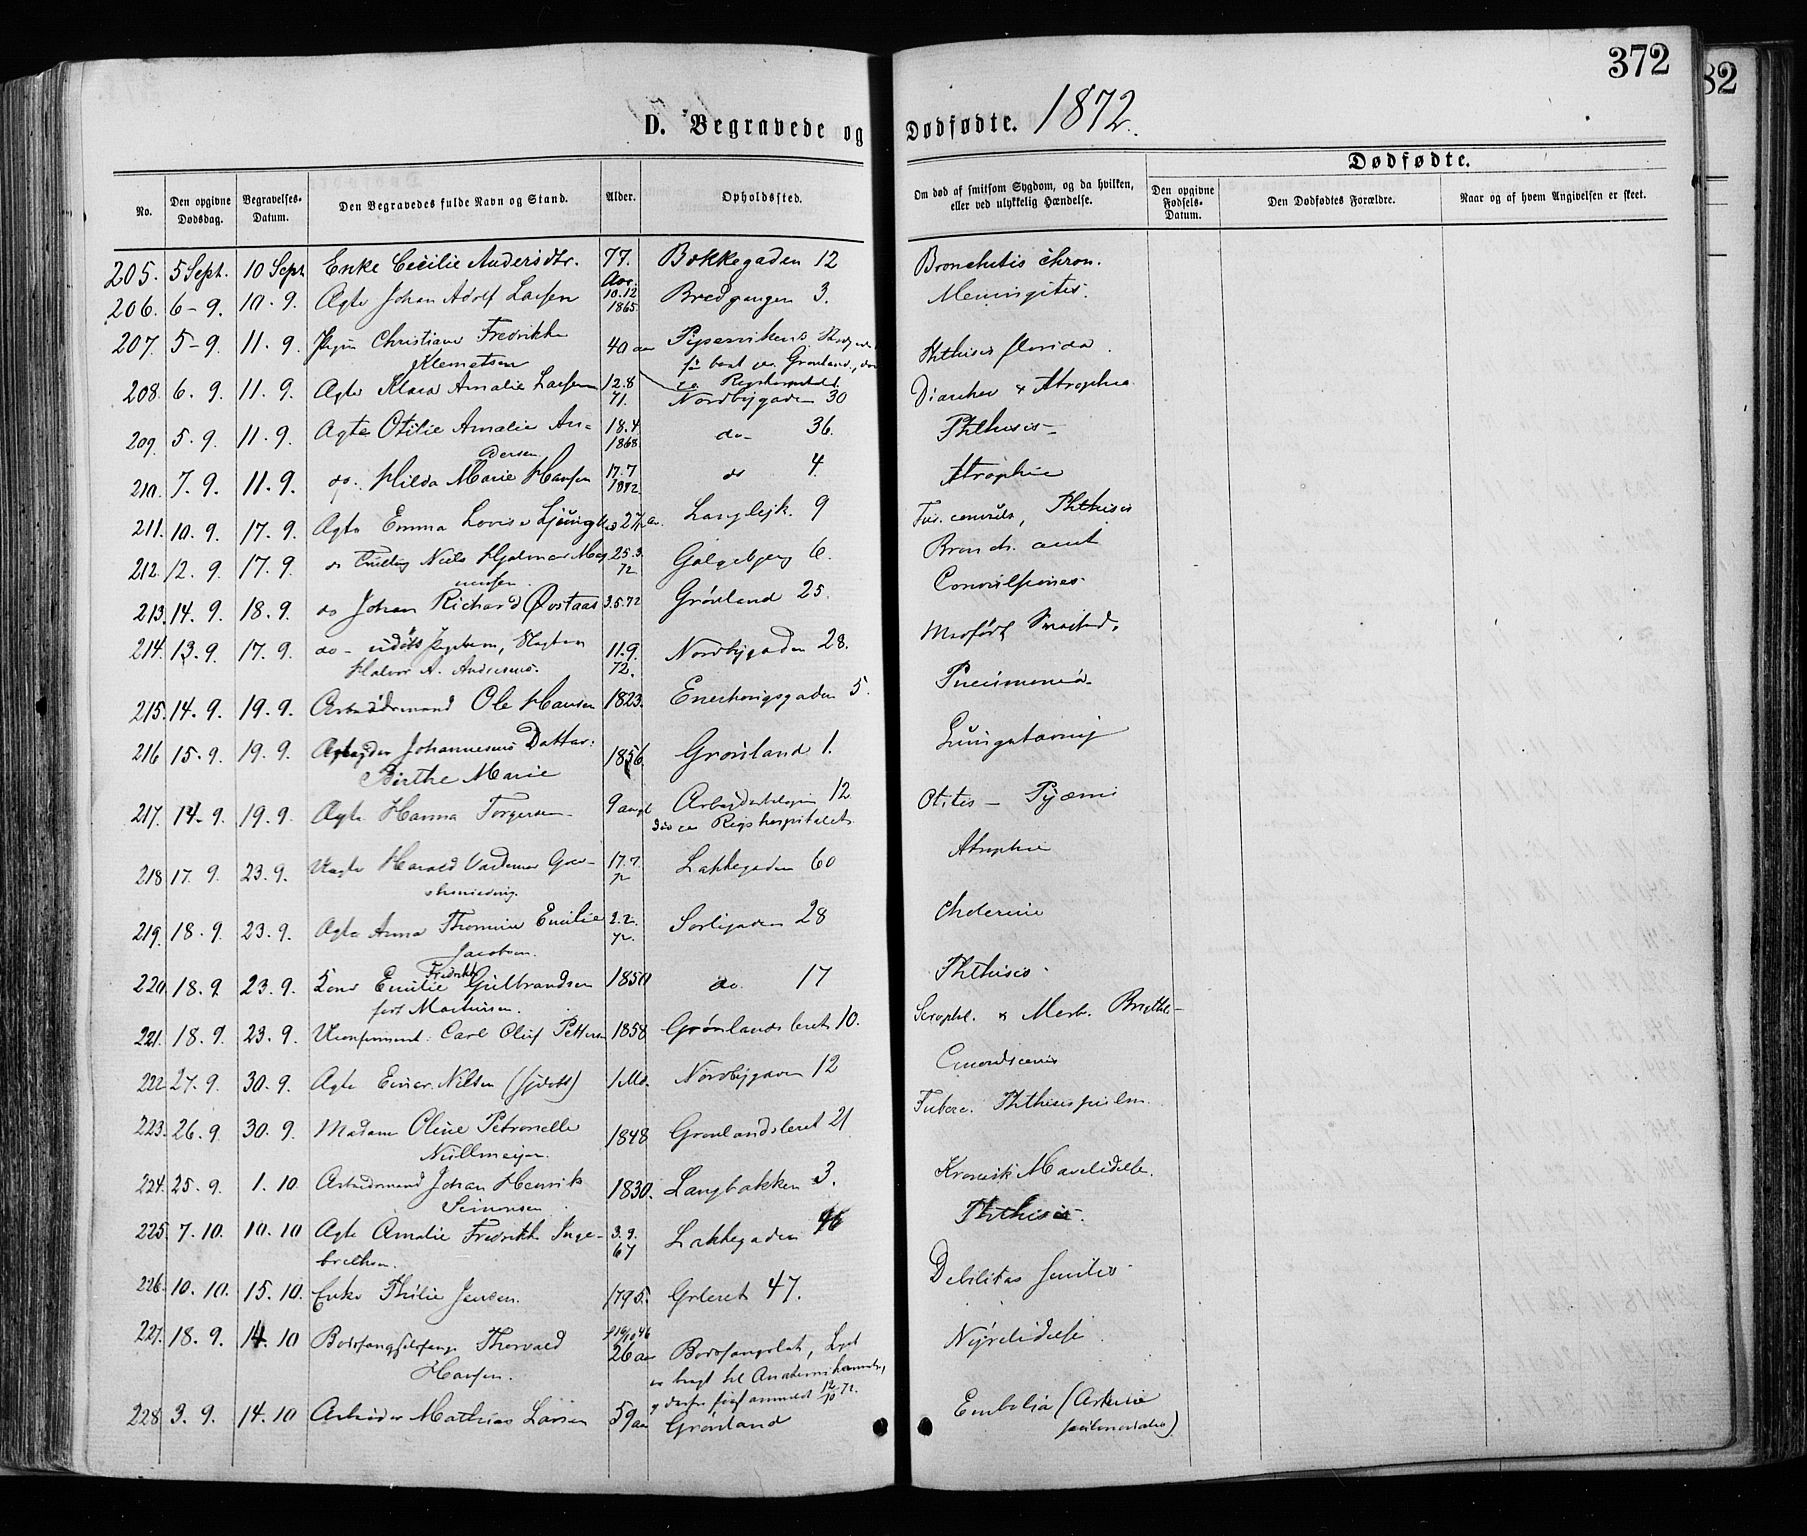 372
82
D. Begravede og Dødfødte. 1872.
Dødfødte.
No.
Den opgivne Dødsdag.
Begravelses-Datum.
Den Begravedes fulde Navn og Stand.
Alder.
Opholdssted.
Om død af smitsom Sygdom, og da hvilken, eller ved ulykkelig Hændelse.
Den opgivne Fødsels-Datum.
Den Dødfødtes Forældre.
Naar og af hvem Angivelsen er skeet.
205. 5 Sept. 10 Sept. Enke Cecilie Andersdtr. 77. Aar. Bokkegaden 12 Bronchitis chron.
206. 6-9. 10.9. Ægte Johan Adolf Larsen 10.12 1865 Bredgangen 3. Meningites.
207. 5-9. 11.9. Pigen Christiane Fredrikke 40 aar Pipervikens
Klemetsen Phthisis florida
208. 6.9. 11.9. Ægte Klara Amalie Larsen 12.8 71. Nordbygaden 30 Diarrhee & Atrophia
209. 5.9. 11.9. Ægte Otilie Amalie An- 18.4 1868 do- 36. Phthisis-
dersen
210. 7.9. 11.9. do. Hilda Marie Hansen 17.7 1872 do 4 Atrophie
211. 10.9. 17.9. Ægte Emma Lovise 27 a. Langlejk. 9 Phthisis
212. 12.9. 17.9. do Niels Hjalmar Mag 25.3. 72 Galgebjerg 6. Bronch. acut
nussen.
213. 14.9. 18.9. do Johan Richard Øvstaas 3.5.72 Grønland 25. Convulsiones.
214. 13.9. 17.9. do- udøbt 11.9. 72. Nordbygaden 28. Medfødt
Halvor A. Andersens.
215. 14.9. 19.9. Arbeidsmand Ole Hansen 1823. Enerhougsgaden 5. Pneumonia
216 15.9. 19.9. Johannesens Datter: 1856 Grønland 1. Lungetæring
Birthe Marie
217. 14.9. 19.9. Ægte Hanna Torgersen 9 Arbeiderboligen 12 Otites - Pyæmi
død paa Rigshospitalet
218 17.9. 23.9. Uægte Harald Valdemar 17.7. 72 Lakkegaden 60 Atrophie
219. 18.9. 23.9. Ægte Anna Thomine Emilie 2.2. 72. Sorligaden 28 Cholerine
Jacobsen.
220 18.9 23.9. Kone Emilie Fredrikke Gulbrandsen 1850 do. 17 Phthisis
født Martinsen.
221. 18.9. 23.9. Ukonfirmeret: Carl Oluf Petters 1858 Grønlandsleret 10. Scrophl. & Morb. Brigthi-
222 27.9. 30.9. Ægte Einar Nilsen (hjdøbt) 1 Md. Nordbygaden 12
223. 26.9. 30.9. Madam Oline Petronelle 1848 Grønlandsleret 21 Phthisis pulm.
Nüllmeijer.
224. 25.9. 1.10. Arbeidsmand Johan Henrik 1830. Langbakken 3. Kronisk Mavelidelse.
Simonsen.
225. 7.10. 10.10 Ægte Amalie Fredrikke Inge- 3.9. 67 Lakkegaden Phthisis.
bretsen.
226. 10.10. 15.10. Enke Thilie Jensen. 1795. Grleret 47. Debilitas senilis
227. 18.9. 14.10 Bodsfængselsfange Thorvald f 19/10 46 26 aar Bodsfængslet, Liget Nyrelidelse
Hansen. er bragt til Anatomikammeret,
og derfor først anmeldt 12/10 72.
228 3.9. 14.10 Arbeider Mathias Larsen 59 aar Grønland Embolia (Arterie
pulmonalis)